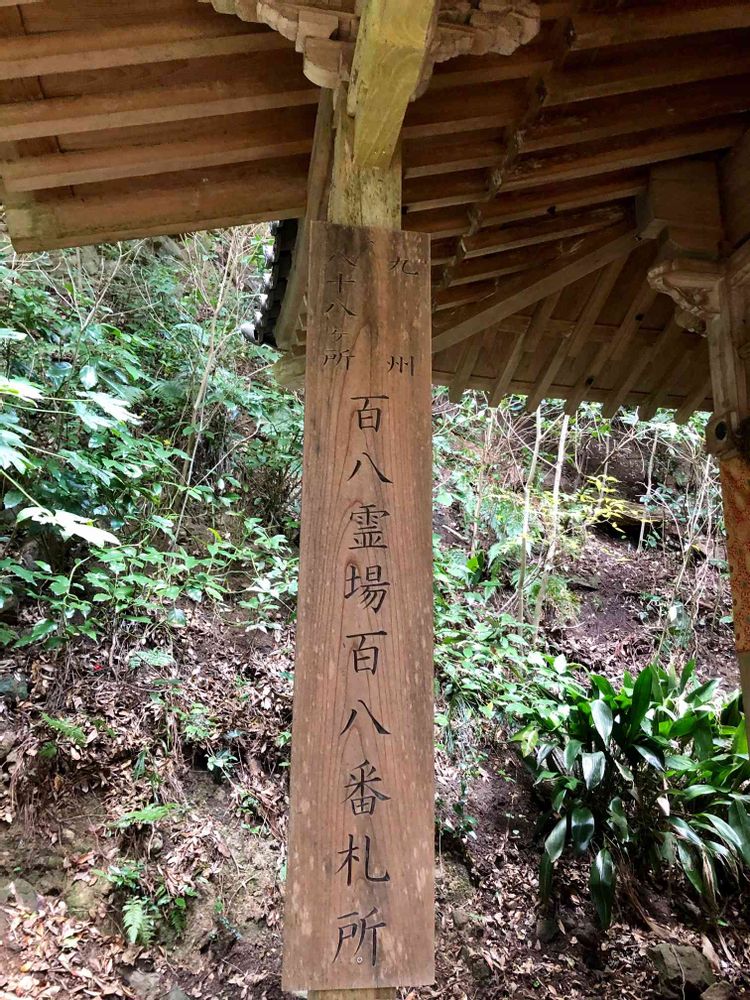 九州
八十八ヶ所
百八霊場百八番札所